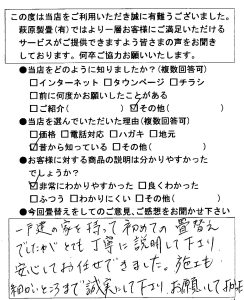 この度は当店をご利用いただき誠に有難うございました。
萩原製畳(有)ではより一層お客様にご満足いただける
サービスがご提供できますよう皆さまの声をお聞き
しております。何卒ご協力お願いいたします。
●当店をどのように知りましたか?(複数回答可)
□インターネット □タウンページ □チラシ
□前に何度かお願いしたことがある
□ご紹介( ) ☑その他( )
●当店を選んでいただいた理由(複数回答可)
□価格 □電話対応 □ハガキ □地元
☑昔から知っている □その他( )
●お客様に対する商品の説明は分かりやすかった
でしょうか?
☑非常にわかりやすかった □良くわかった
□ふつう □わかりにくい □その他( )
●今回畳替えをしてのご意見、ご感想をお聞かせ下さい
一戸建の家を持って初めての畳替え
でしたがとても丁寧に説明して下さり、
安心してお任せできました。施工も
細かいところまで誠実にして下さりお願いして